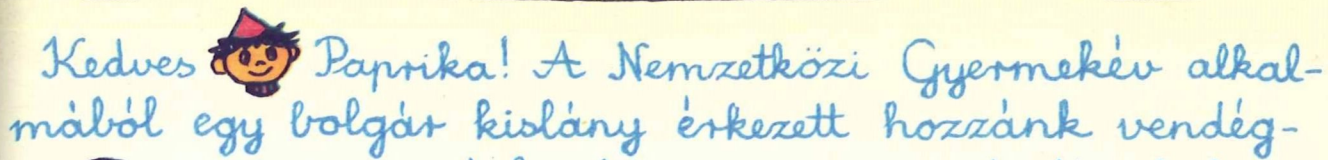 Kedves Paprika! A Nemzetközi Gyermekév alkal-
mából egy bolgár kislány érkezett hozzánk vendég-